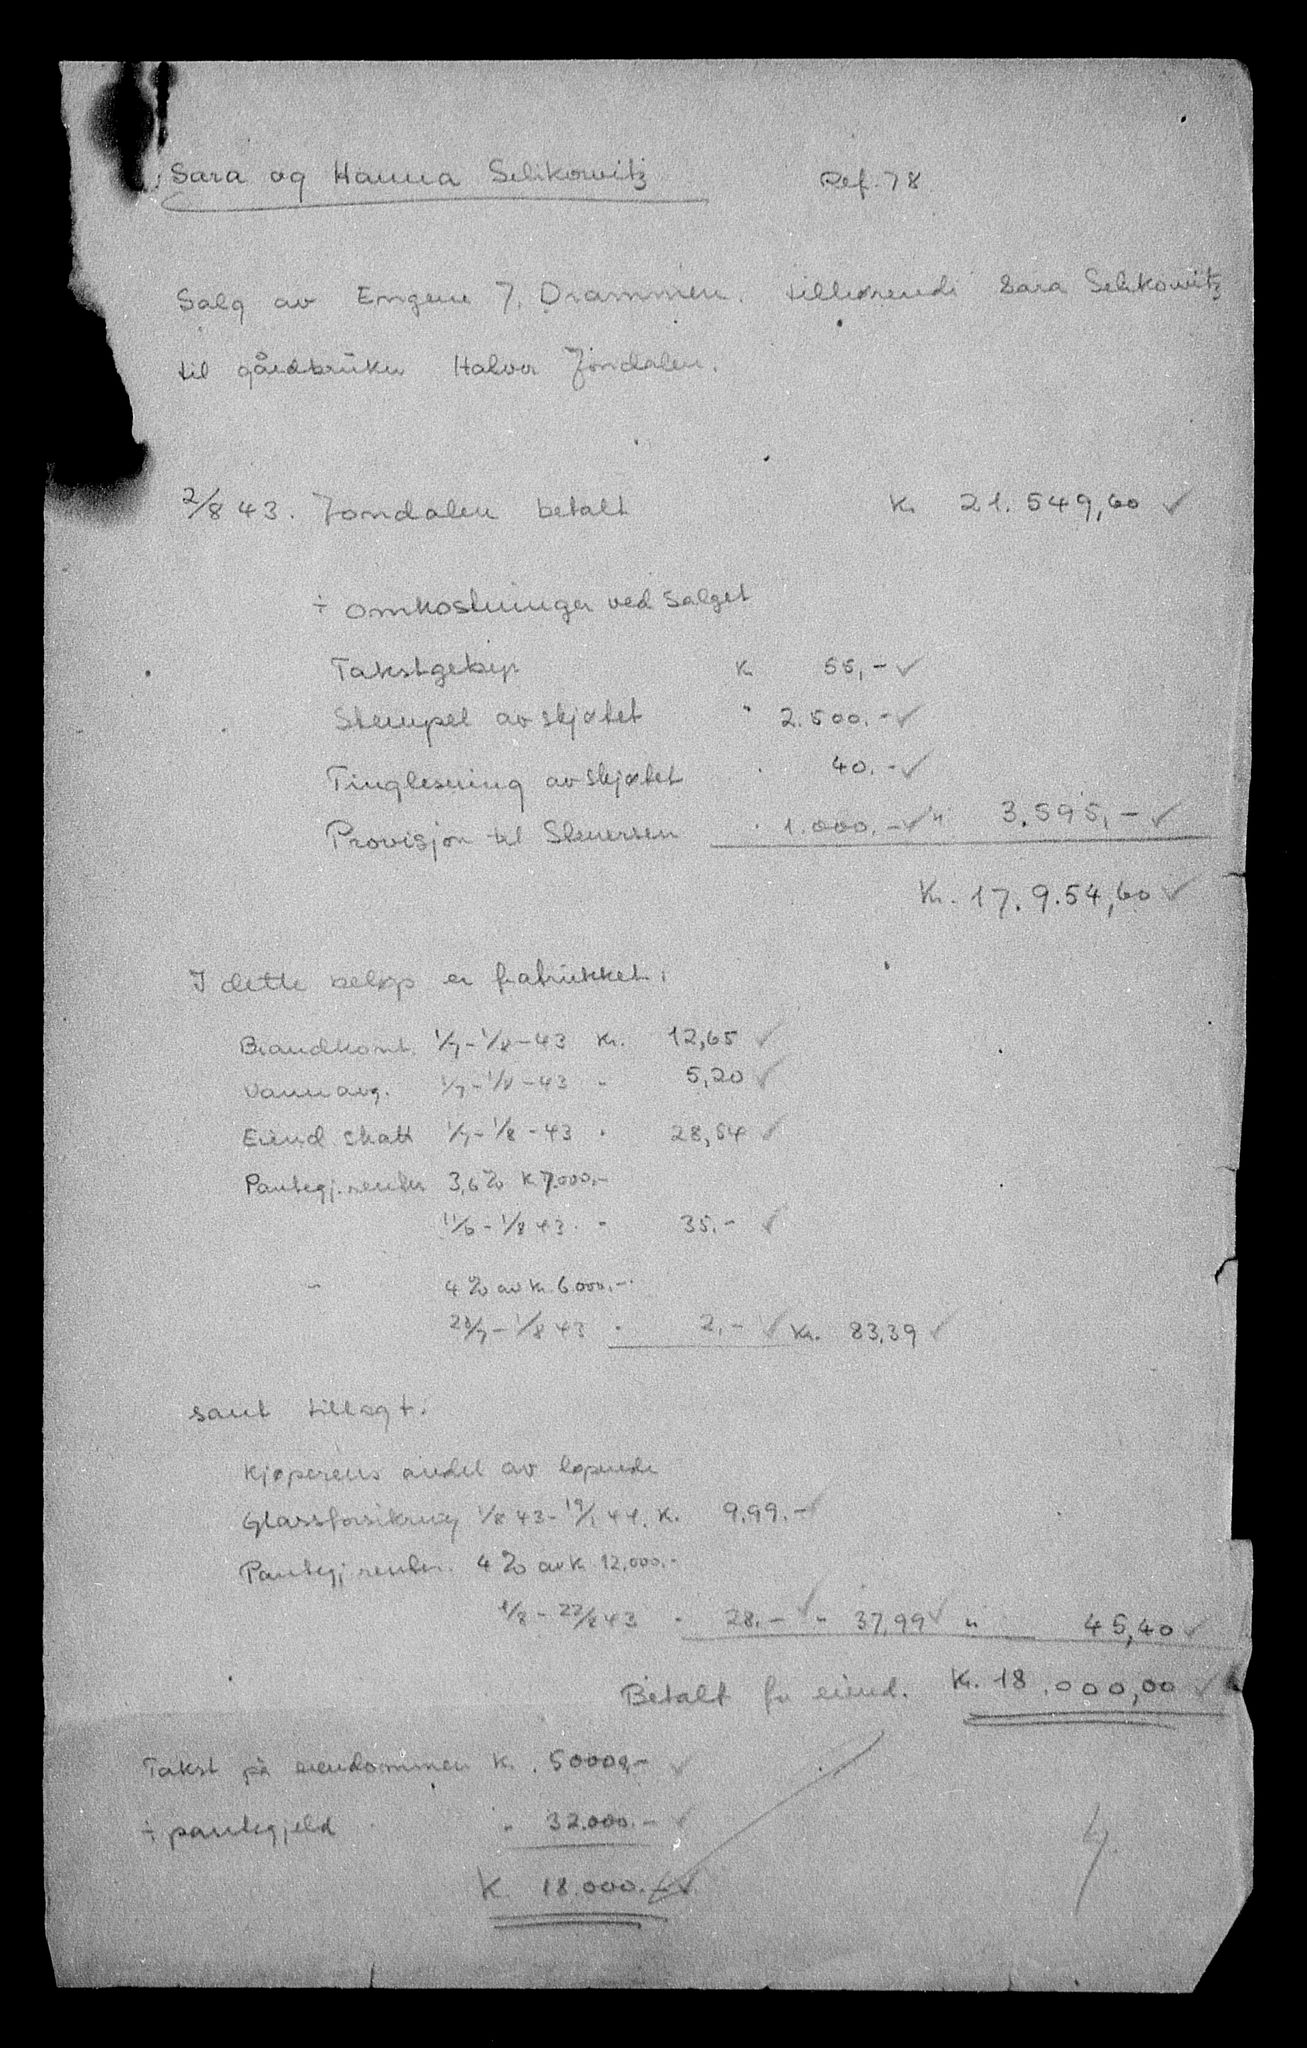 Sara og Hanna Selikowitz Ref. 78
Salg av Engene 7, Drammen. tilhørende Sara Selikowitz
til gårdbruker Halvor Jondalen.
2/8 43. Jondalen betalt Kr. 21.549,60 ✓
÷ omkostninger ved salget
Takstgebyr K 55,- ✓
Stempel av skjøtet " 2.500.- ✓
Tinglesning av skjøtet " 40.- ✓
Provisjon til Steuersen " 1.000.- ✓ " 3.595,- ✓
Kr. 17.9.54,60 ✓
I dette beløp er fratrukket:
Brandkont. 1/7-1/8-43 Kr. 12,65 ✓
Vannavg. 1/7-1/8-43 " 5,20 ✓
Eiend skatt 1/7-1/8-43 " 28,54 ✓
Pantegj.renter 3,6% K 7.000.-
11/6-1/8 43. " 35.- ✓
" 4% av Kr. 6.000.-
23/7-1/8 43 " 2,- ✓ Kr. 83,39 ✓
samt tillagt:
Kjøperens andel av løpende
Glassforsikring 1/8 43-19/1 44. K. 9.99.- ✓
Pantegj renter. 4% av K 12.000.-
1/8-22/8 43 " 28.- ✓ " 37,99 ✓ " 45,40 ✓
Betalt for eiend. Kr. 18.000,00 ✓
Takst på eiendommen K. 50000,- ✓
÷ pantegjeld " 32.000.- ✓
K. 18.000.- ✓